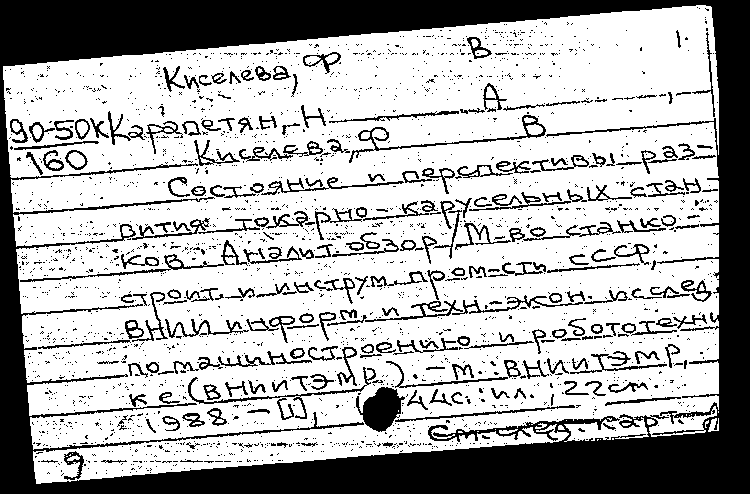 Киселева, Ф В 1.
90-50К Карапетян, Н А
160 Киселева, Ф В
Состояние и перспективы раз-
вития токарно-карусельных стан-
ков: Аналит. обзор / М-во станко-
строит. и инструм. пром-сти СССР,
ВНИИ информ. и техн.-экон. исслед.
по машиностроению и робототехни
ке (ВНИИТЭМР). - М.: ВНИИТЭМР,
1988. - [1], 44с.: ил.; 22см.
См. след. карт.
9